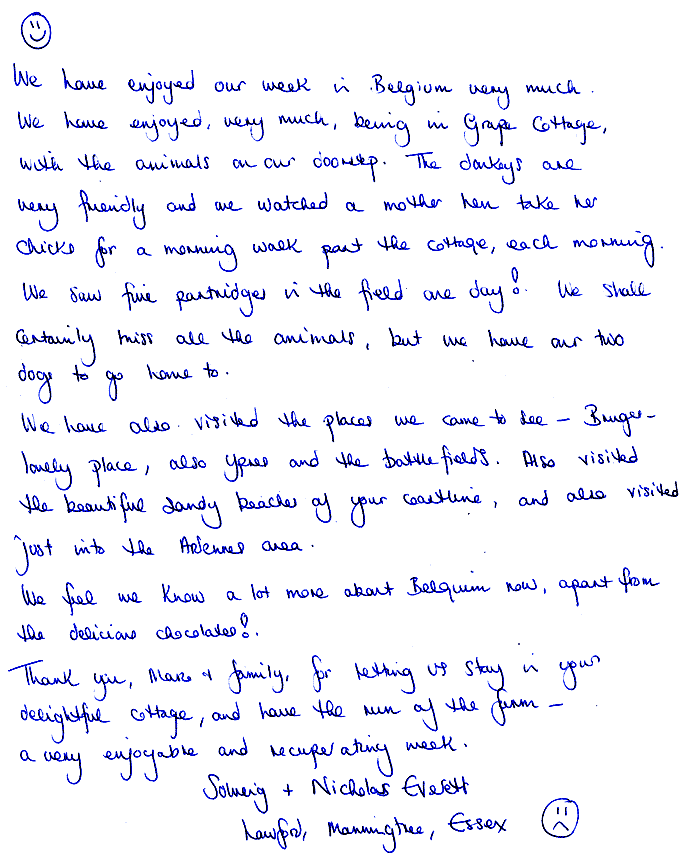 We have enjoyed our week in Belgium very much.
We have enjoyed, very much, being in Grape Cottage,
with the animals on our doorstep. The donkeys are
very friendly and we watched a mother hen take her
chicks for a morning walk past the cottage, each morning.
We saw five partridges in the field one day! We shall
certainly miss all the animals, but we have our two
dogs to go home to.
We have also visited the places we came to see - Bruges -
lovely place, also Ypres and the battlefields. Also visited
the beautiful sandy beaches of your coastline, and also visited
just into the Ardennes area.
We feel we know a lot more about Belguim now, apart from
the delicious chocolates!
Thank you, Marc + family, for letting us stay in your
delightful cottage, and have the run of the farm -
a very enjoyable and recuperating week.
Solweig + Nicholas Everett
Lawford, Manningtree, Essex